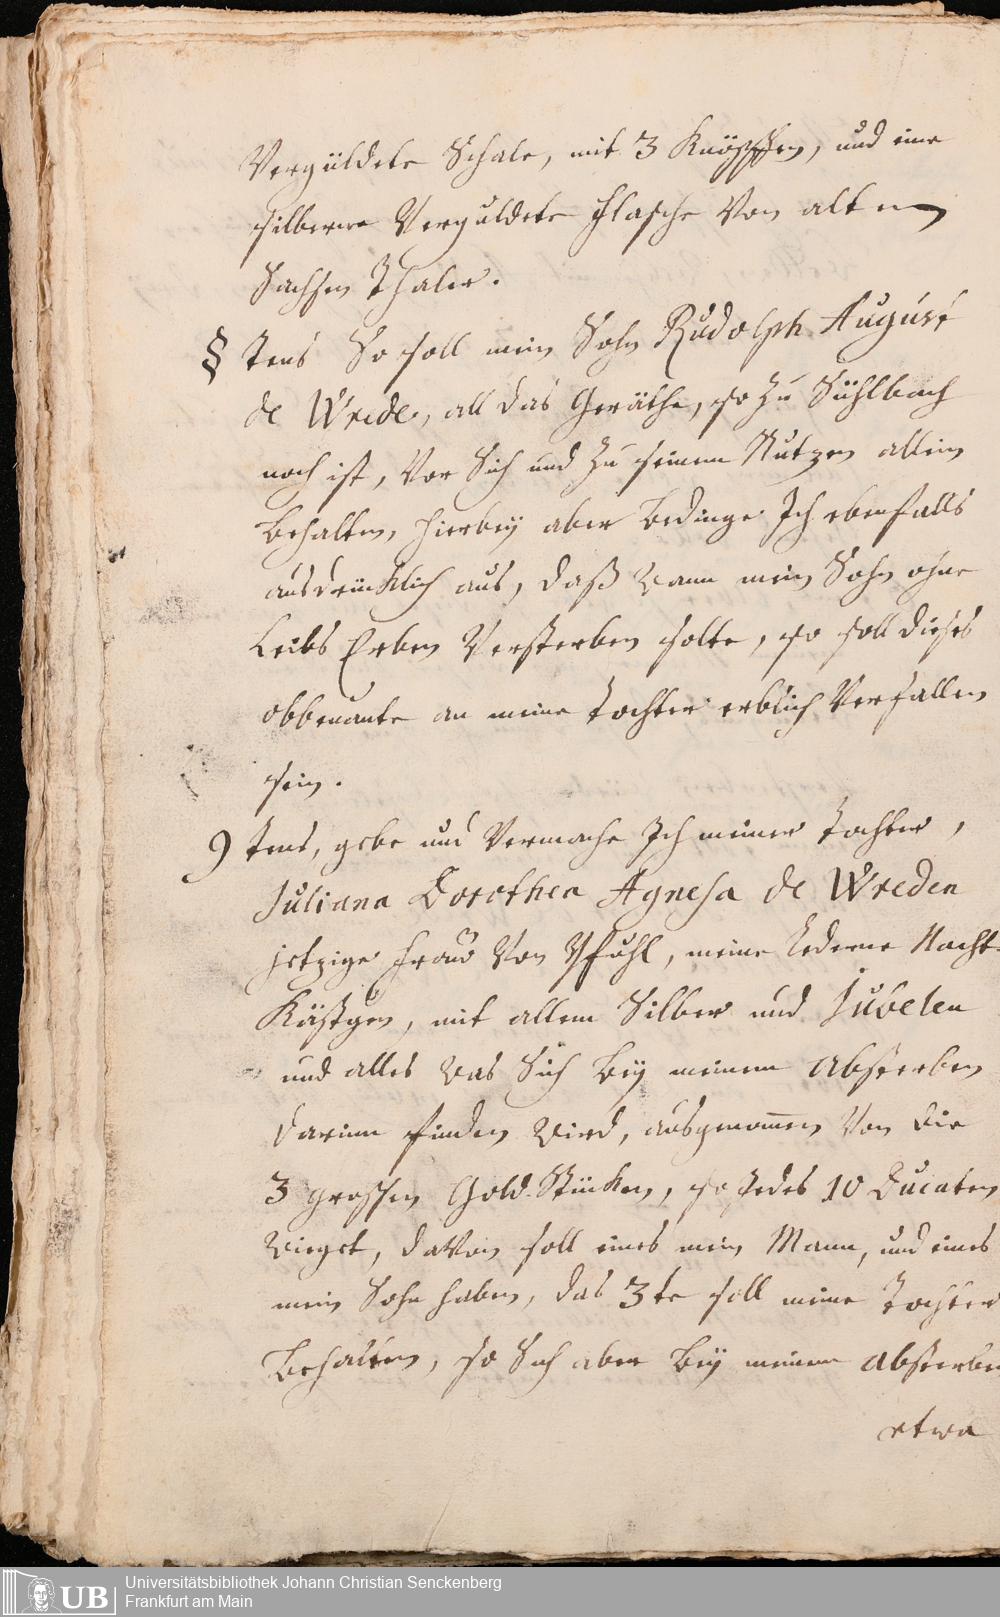 Vergüldete Schale, mit 3 Knöpffen, und eine
silberne Verguldete Flasche Von alten
Sachsen Thaler.
8 tens So soll mein Sohn Rudolph August
de Wrede, all das Geräthe, so zu Sühlbach
noch ist, Vor Sich und zu seinem Nutzen allein
Behalten, Hierbey aber Bedinge Ich ebenfalls
ausdrücklich aus, daß Wann mein Sohn ohne
Leibs Erben Versterben solte, so soll dieses
obbenante an meine Tochter erblich Verfallen
sein.
9 tens, gebe und Vermache Ich meiner Tochter,
Juliana Dorothea Agnesa de Wreden
jetzige Frau Von Pfuhl, meine Lederne Nacht-
Kästgen, mit allem Silber und Jubelen
und alles Was Sich Bey meinem Absterben
darinn finden Wird, ausgenom̅en Von die
3 grossen Gold-Stücken, so jedes 10 Ducaten
Wieget, daVon soll eines mein Mann, und eines
mein Sohn haben, das 3te soll meine Tochter
Behalten, so Sich aber Bey meinem Absterben
etwa
UB
Universitätsbibliothek Johann Christian Senckenberg
Frankfurt am Main